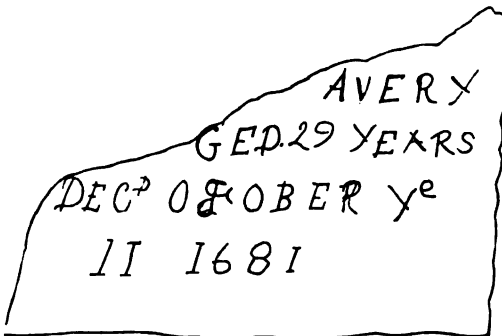 AVERY
GED.29 YEARS
DECᴰ OCTOBER Yᵉ
11 1681